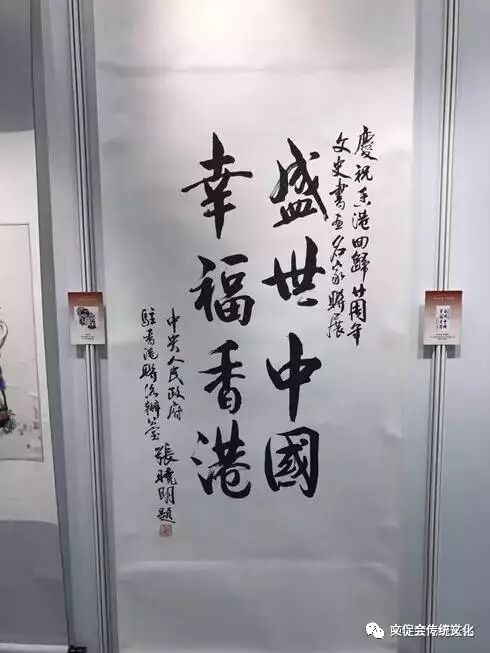 慶祝香港回歸廿周年
文史書画名家聯展
盛世中國
幸福香港
中央人民政府
駐香港聯絡辦公室 張曉明題
文促会传统文化